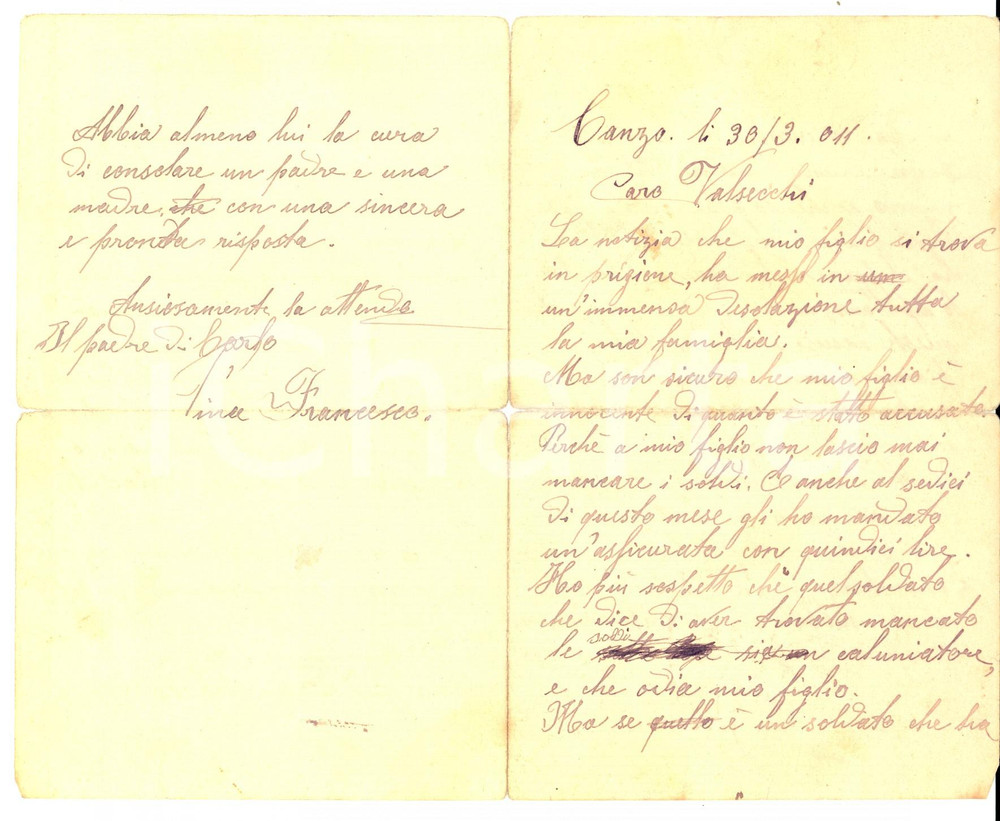 Canzo. li 30/3. 911.
Caro Valsecchi
La notizia che mio figlio si trova
in prigione, ha messo in una
un'immensa desolazione tutta
la mia famiglia.
Ma son sicuro che mio figlio è
innocente di quanto è stato accusato.
Perchè a mio figlio non lascio mai
mancare i soldi. E anche al sedici
di questo mese gli ho mandato
un'assicurata con quindici lire.
Ho più sospetto che quel soldato
che dice di aver trovato mancato
le soldi sia un caluniatore,
e che odia mio figlio.
Ma se quello è un soldato che ha
Abbia almeno lui la cura
di consolare un padre e una
madre, che con una sincera
e pronta risposta.
Ansiosamente la attendo
Il padre di Carlo
Francesco.